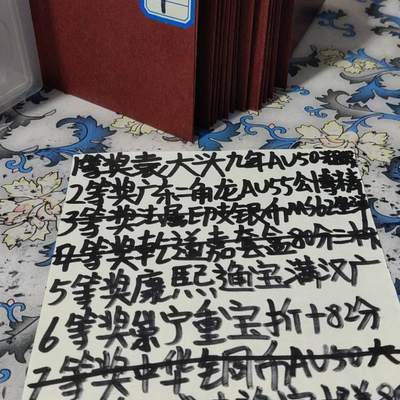 1等奖袁大头九年AU50
2等奖广东二角龙AU55公博
3等奖法属印支银币MS62
4等奖乾道嘉套金80分二枚
5等奖康熙通宝满汉广
6等奖崇宁重宝折十82分
7等奖中华铜币AU50大